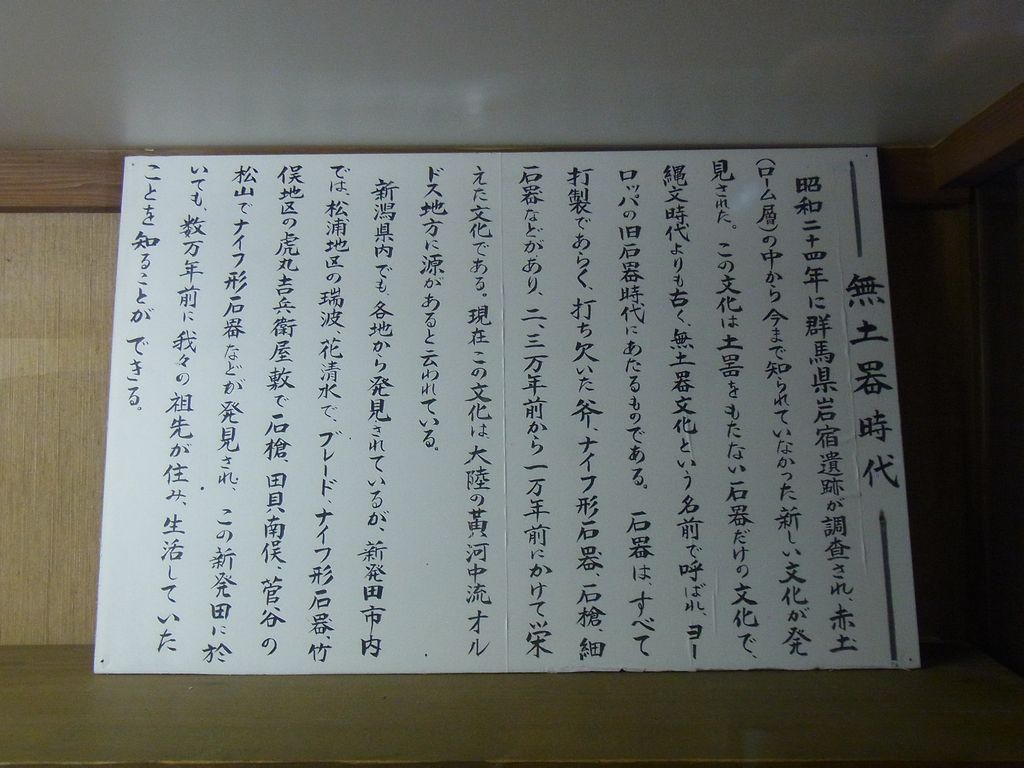 無土器時代
昭和二十四年に群馬県岩宿遺跡が調査され、赤土
(ローム層)の中から今まで知られていなかった新しい文化が発
見された。この文化は土器をもたない石器だけの文化で、
縄文時代よりも古く、無土器文化という名前で呼ばれ、ヨー
ロッパの旧石器時代にあたるものである。石器は、すべて
打製であらく、打ち欠いた斧、ナイフ形石器、石槍、細
石器などがあり、二、三万年前から一万年前にかけて栄
えた文化である。現在この文化は、大陸の黄河中流オル
ドス地方に源があると云われている。
新潟県内でも、各地から発見されているが、新発田市内
では、松浦地区の瑞波、花清水で、ブレード、ナイフ形石器、竹
俣地区の虎丸吉兵衛屋敷で石槍、田貝、南俣、菅谷の
松山でナイフ形石器などが発見され、この新発田に於
いても、数万年前に我々の祖先が住み、生活していた
ことを知ることができる。